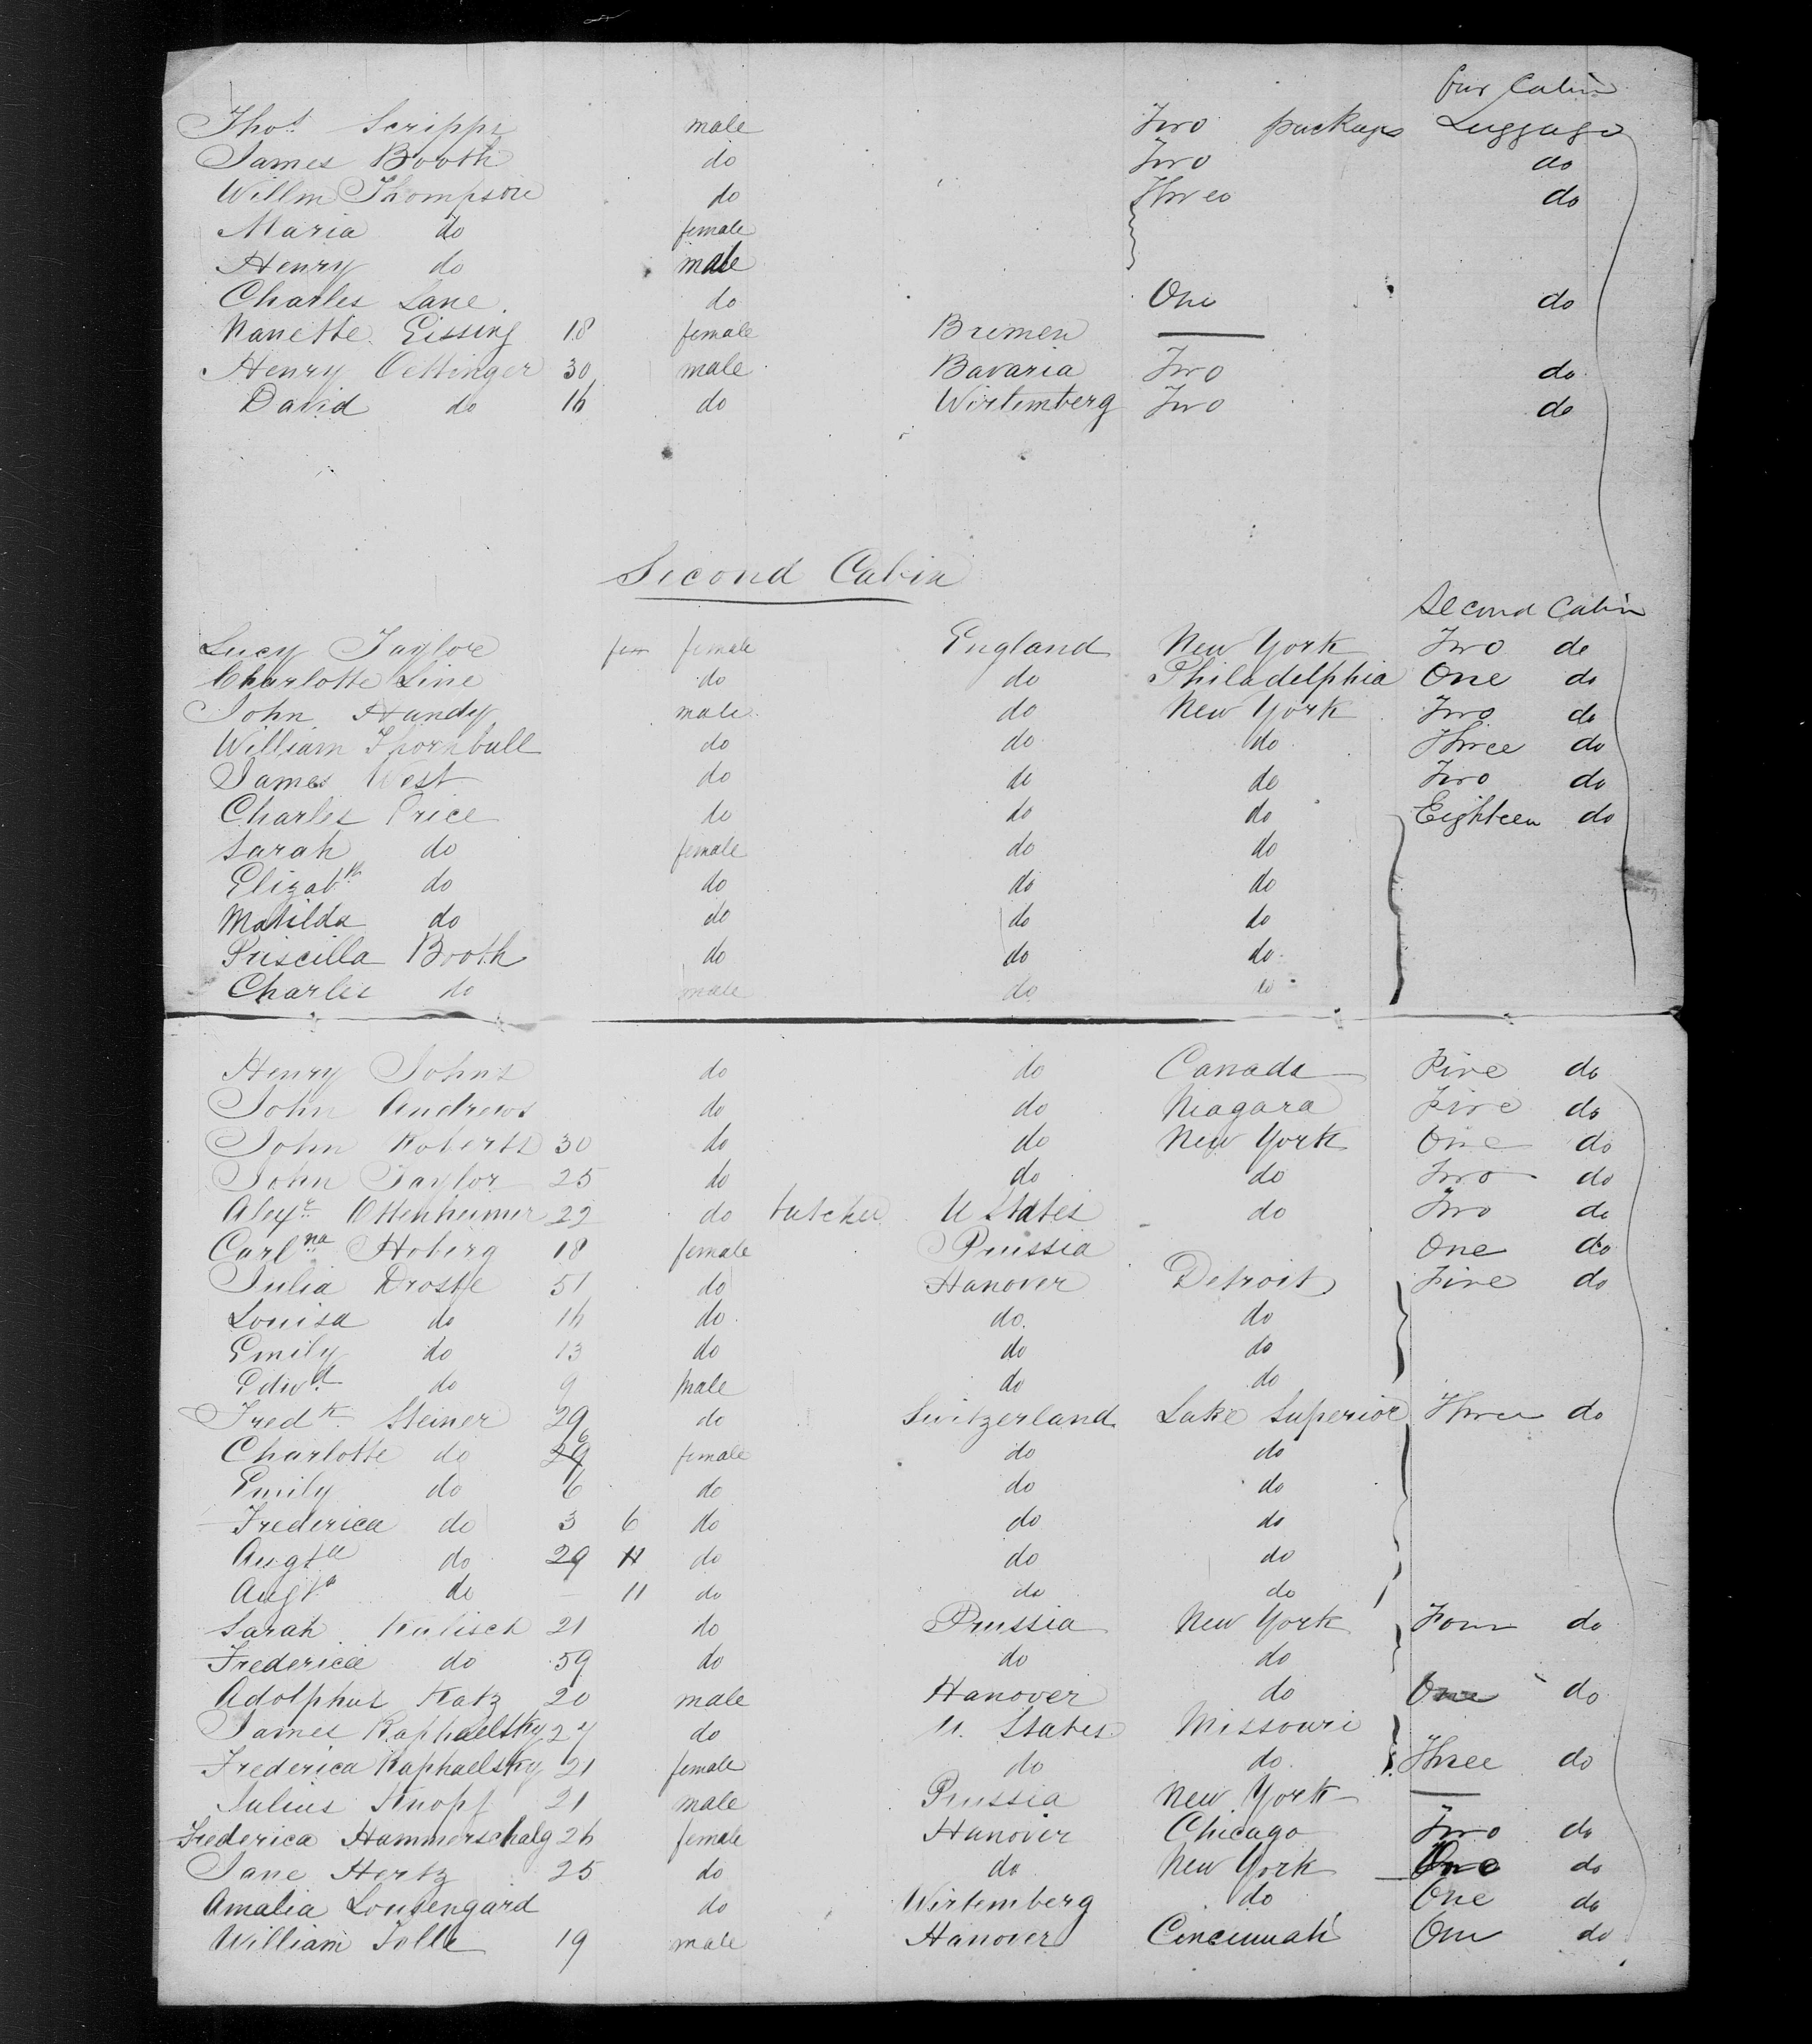 for Cabin
Thos Scripps male Two packages Luggage
James Booth do Two do
Willm Thompson do Three do
Maria do female
Henry do male
Charles Lane do One do
Nanette Gissing 18 female Bremen —
Henry Oettinger 30 male Bavaria Two do
David do 16 do Wirtemberg Two do
Second Cabin
Second Cabin
Lucy Taylor fem female England New York Two do
Charlotte Line do do Philadelphia One do
John Handy male do New York Two do
William Thornbull do do do Three do
James West do do do Two do
Charles Price do do do Eighteen do
Sarah do female do do
Elizabth do do do do
Matilda do do do do
Priscilla Booth do do do
Charles do male do do
Henry Johns do do Canada Five do
John Andrews do do Niagara Five do
John Roberts 30 do do New York One do
John Taylor 25 do do do Two do
Alexr Ottenheimer 22 do butcher U States do Two do
Carlna Hoberg 18 female Prussia One do
Julia Droste 51 do Hanover Detroit Five do
Louisa do 16 do do do
Emily do 13 do do do
Edwd do 9 male do do
Fredk Steiner 29 do Switzerland Lake Superior Three do
Charlotte do 26 female do do
Emily do 6 do do do
Frederica do 3 6 do do do
Augta do 29 11 do do do
Augta do — 11 do do do
Sarah Kalisch 21 do Prussia New York Four do
Frederica do 59 do do do
Adolphus Katz 20 male Hanover do One do
James Raphaelsky 27 do U. States Missouri
Frederica Raphaelsky 21 female do do Three do
Julius Knopf 21 male Prussia New York —
Frederica Hammerschalg 26 female Hanover Chicago Two do
Jane Hertz 25 do do New York One do
Amalia Loutengard do Wirtemberg do One do
William Tolle 19 male Hanover Cincinnati One do